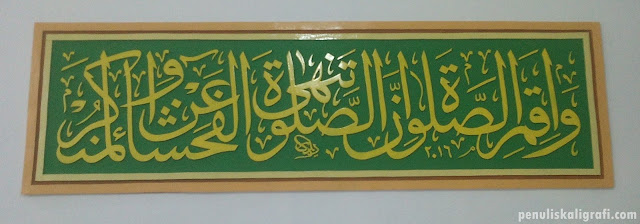 وَاَقِمِ الصَّلٰوةَ اِنَّ الصَّلٰوةَ تَنْهٰى عَنِ الْفَحْشَاءِ وَالْمُنْكَرِ
٢٠١٦
penuliskaligrafi.com